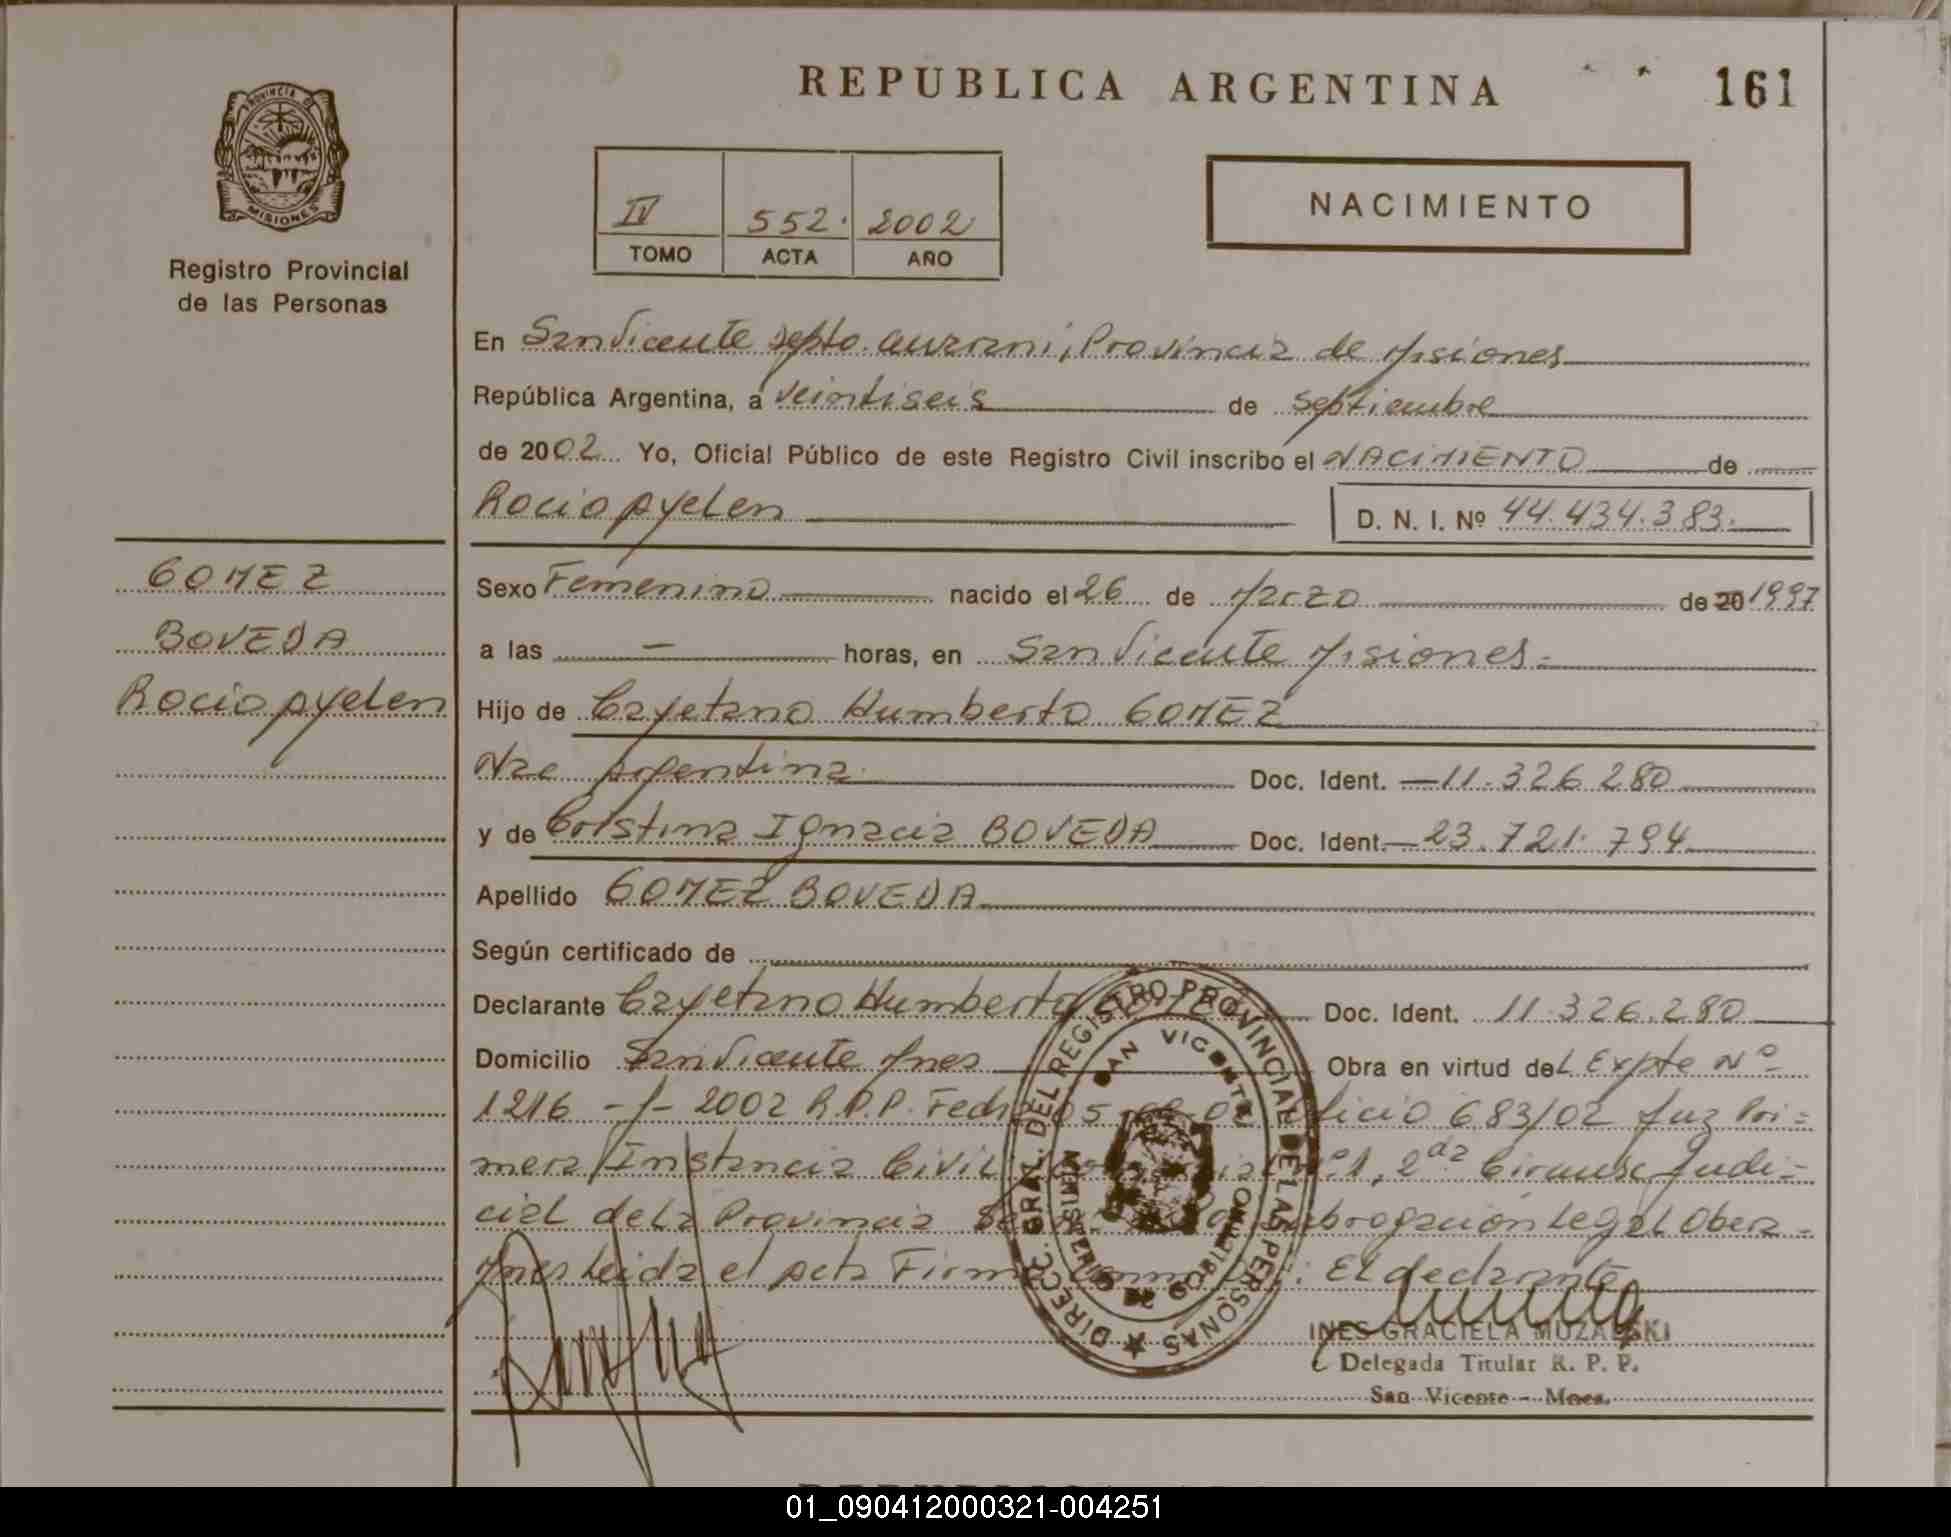 REPUBLICA ARGENTINA
161
PROVINCIA DE
MISIONES
Registro Provincial
de las Personas
IV 552. 2002
TOMO ACTA AÑO
NACIMIENTO
En San Vicente Depto. Guarani, Provincia de Misiones
República Argentina, a veintiseis de septiembre
de 2002 Yo, Oficial Público de este Registro Civil inscribo el NACIMIENTO de
Rocio Ayelen
D. N. I. Nº 44.434.383.
GOMEZ
BOVEDA
Rocio Ayelen
Sexo Femenino nacido el 26 de Marzo de 20 1997
a las — horas, en San Vicente Misiones.
Hijo de Cayetano Humberto GOMEZ
Nac Argentina Doc. Ident. 11.326.280
y de Cristina Ignacia BOVEDA Doc. Ident. 23.721.794
Apellido GOMEZ BOVEDA
Según certificado de
Declarante Cayetano Humberto Doc. Ident. 11.326.280
Domicilio San Vicente Mnes Obra en virtud del Expte Nº
1216 - 2002 R.P.P. Fecha 683/02 Juz Pri=
mera Instancia Civil Nº1, 2da Circunsc Judi=
cial de la Provincia Subrogacion Legal Obera-
Mnes Leida el Acta Firma : El declarante
DIRECC. GRAL. DEL REGISTRO PROVINCIAL DE LAS PERSONAS
SAN VICENTE
INES GRACIELA MUZALSKI
Delegada Titular R. P. P.
San Vicente - Mnes.
01_090412000321-004251